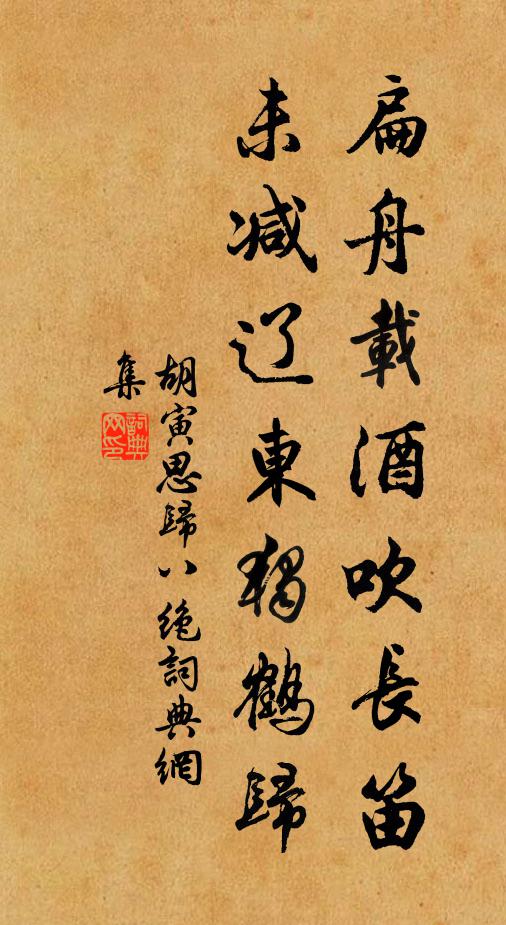 扁舟載酒吹長笛
未减辽東獨鶴歸
胡寅思歸八绝詞典網
集
詞典
网印